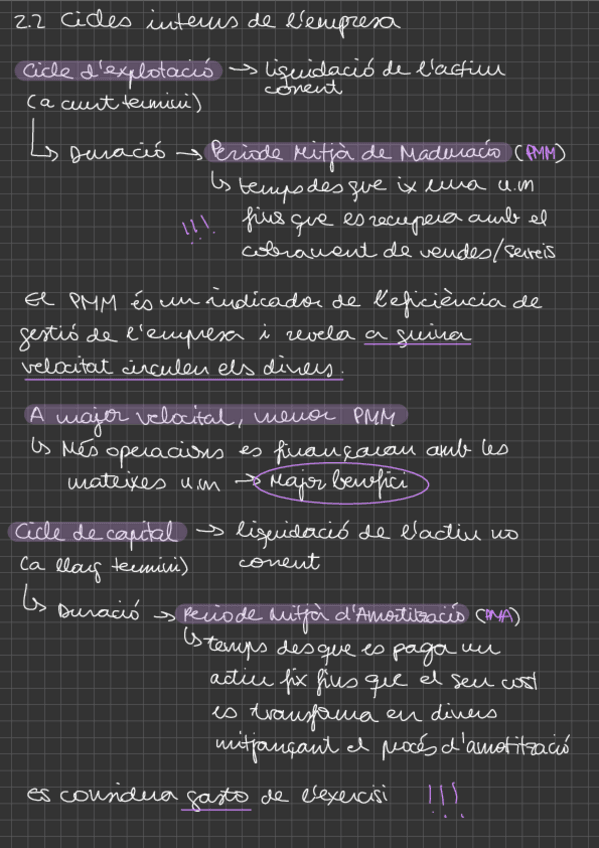 2.2 Cicles interns de l'empresa
Cicle d'explotació → liquidació de l'actiu
corrent
(a curt termini)
↳ Duració → Període Mitjà de Maduració (PMM)
↳ temps des que ix una u.m
!!! fins que es recupera amb el
cobrament de vendes/serveis
El PMM és un indicador de l'eficiència de
gestió de l'empresa i revela a quina
velocitat circulen els diners.
A major velocitat, menor PMM
↳ Més operacions es finançaran amb les
mateixes u.m → Major benefici
Cicle de capital → liquidació de l'actiu no
(a llarg termini) corrent
↳ Duració → Periode Mitjà d'Amortització (PMA)
↳ temps des que es paga un
actiu fix fins que el seu cost
es transforma en diners
mitjançant el procés d'amortització
es considera gasto de l'exercisi !!!